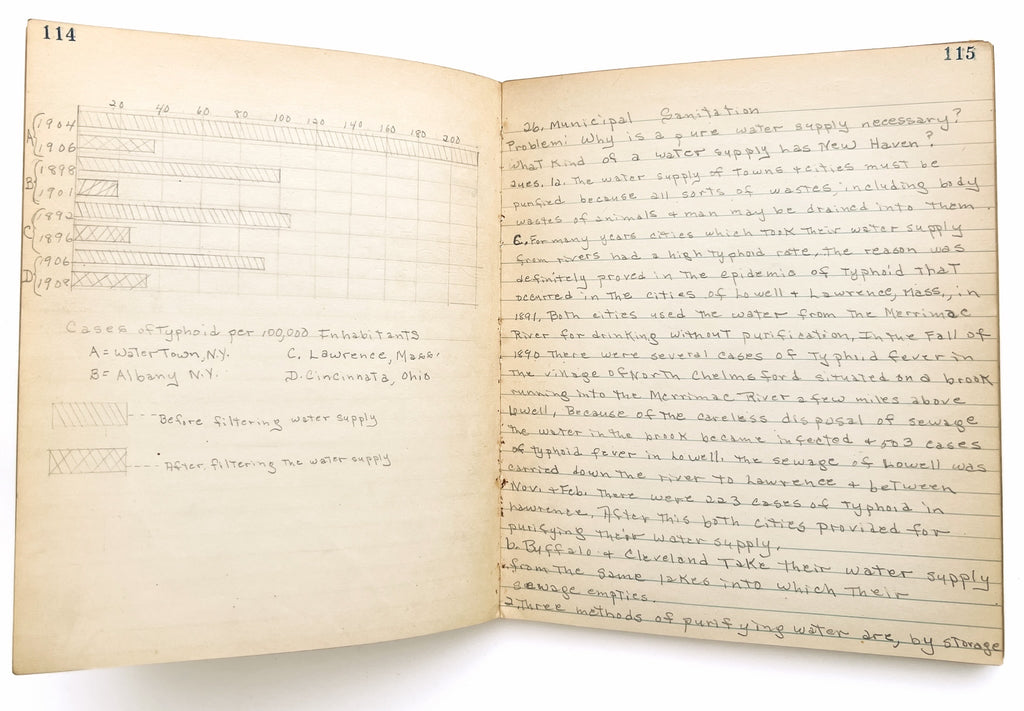 114
20 40 60 80 100 120 140 160 180 200
A 1904
1906
B 1898
1901
C 1892
1896
D 1906
1908
Cases of Typhoid per 100,000 Inhabitants
A = WaterTown, N.Y. C. Lawrence, Mass.
B = Albany N.Y. D. Cincinnata, Ohio
Before filtering water supply
After, filtering the water supply
115
26. Municipal Sanitation
Problem: Why is a pure water supply necessary?
What Kind of a water supply has New Haven?
Ques. 1a. The water supply of Towns & cities must be
purified because all sorts of wastes including body
wastes of animals & man may be drained into them.
C. For many years cities which took their water supply
from rivers had a high typhoid rate, The reason was
definitely proved in the epidemic of typhoid that
occurred in the cities of Lowell & Lawrence, Mass., in
1891, Both cities used the water from the Merrimac
River for drinking without purification, In the Fall of
1890 there were several cases of fever in
the village of North Chelmsford situated on a brook
running into the Merrimac River a few miles above
Lowell, Because of the careless disposal of sewage
the water in the brook became infected & 503 cases
of typhoid fever in Lowell, the sewage of Lowell was
carried down the river to Lawrence & between
Nov. & Feb. there were 223 cases of typhoid in
Lawrence, After this both cities provided for
purifying their water supply,
b. Buffalo & Cleveland take their water supply
from the same lakes into which their
sewage empties.
2. Three methods of purifying water are, by storage